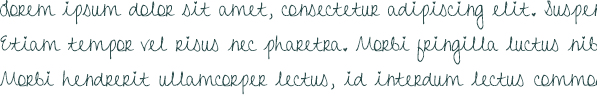 lorem ipsum dolor sit amet, consectetur adipiscing elit.
Etiam tempor vel risus nec pharetra. Morbi fringilla luctus
Morbi hendrerit ullamcorper lectus, id interdum lectus